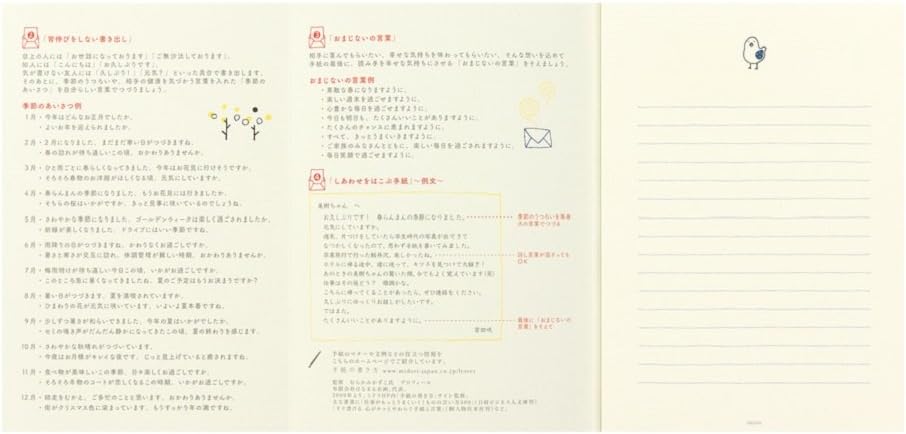 2 「背伸びをしない書き出し」
目上の人には「お世話になっております」「ご無沙汰しております」、
知人には「こんにちは」「お久しぶりです」、
気が置けない友人には「久しぶり！」「元気？」といった具合で書き出します。
そのあとに、季節のうつろいや、相手の健康を気づかう言葉を入れた「季節の
あいさつ」を自分らしい言葉でつづりましょう。
季節のあいさつ例
1月・今年はどんなお正月でしたか。
・よいお年を迎えられましたか。
2月・2月になりました。まだまだ寒い日がつづきますね。
・春の訪れが待ち遠しいこの頃、おかわりありませんか。
3月・ひと雨ごとに春らしくなってきました。今年はお花見に行けそうですか。
・そろそろ春物のお洋服がほしくなる頃、元気にしていますか。
4月・春らんまんの季節になりました。もうお花見には行きましたか。
・そちらの桜はいかがですか。きっと見事に咲いているのでしょうね。
5月・さわやかな季節になりました。ゴールデンウィークは楽しく過ごされましたか。
・新緑が美しくなりました。ドライブにはいい季節ですね。
6月・雨降りの日がつづきますね。かわりなくお過ごしですか。
・暑さと寒さが交互に訪れ、体調管理が難しい時期、おかわりありませんか。
7月・梅雨明けが待ち遠しい今日この頃、いかがお過ごしですか。
・このところ急に暑くなってきましたね。夏のご予定はもうお決まりですか？
8月・暑い日がつづきます。夏を満喫されていますか。
・ひまわりの花が元気に咲いています。いよいよ夏本番ですね。
9月・少しずつ暑さが和らいできました。今年の夏はいかがでしたか。
・セミの鳴き声がだんだん静かになってきたこの頃、夏の終わりを感じます。
10月・さわやかな秋晴れがつづいています。
・今夜はお月様がキレイな夜です。じっと見上げていると癒されますね。
11月・食べ物が美味しいこの季節、日々楽しくお過ごしですか。
・そろそろ冬物のコートが恋しくなるこの時期、いかがお過ごしですか。
12月・師走をむかえ、ご多忙のことと思います。おかわりありませんか。
・街がクリスマス色に染まっています。もうすっかり年の瀬ですね。
3 「おまじないの言葉」
相手に喜んでもらいたい、幸せな気持ちを味わってもらいたい、そんな想いを込めて
手紙の最後に、読み手を幸せな気持ちにさせる「おまじないの言葉」をそえましょう。
おまじないの言葉例
・素敵な春になりますように。
・楽しい週末を過ごせますように。
・心豊かな毎日を過ごせますように。
・今日も明日も、たくさんいいことがありますように。
・たくさんのチャンスに恵まれますように。
・すべて、きっとうまくいきますように。
・ご家族のみなさんとともに、楽しい毎日を過ごされますように。
・毎日笑顔で過ごせますように。
4 「しあわせをはこぶ手紙」〜例文〜
美樹ちゃん へ
お久しぶりです！ 春らんまんの季節になりました。
元気にしていますか。
なつかしくなったので、思わず手紙を書いてみました。
卒業旅行で行った軽井沢、楽しかったね。
こちらに帰ってくることがあったら、ぜひ連絡をください。
久しぶりにゆっくりお話しがしたいです。
ではまた。
たくさんいいことがありますように。
季節のうつろいを等身
大の言葉でつづる
話し言葉が混ざっても
OK
最後に「おまじないの
言葉」をそえて
手紙のマナーや文例などの役立つ情報を
こちらのホームページでご紹介しています。
手紙の書き方 www.midori-japan.co.jp/letter